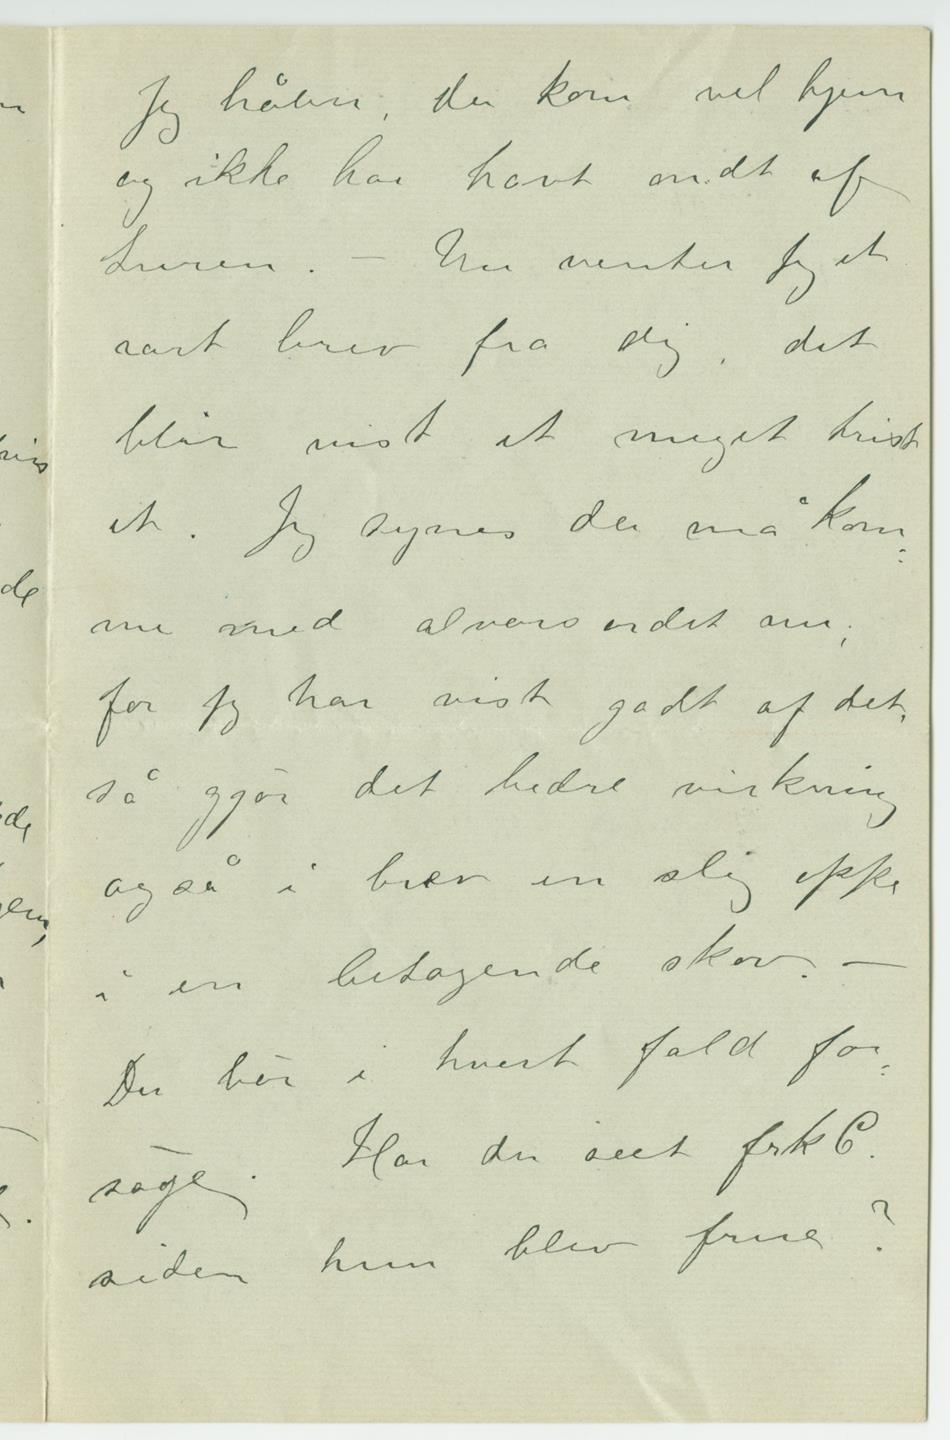 Jeg håber, du kom vel hjem
og ikke har havt ondt af
turen. – Nu venter jeg et
rart brev fra dig, det
blir vist et meget trist
et. Jeg synes du må kom=
me med alvorsordet nu,
for jeg har vist godt af det,
så gjör det bedre virkning
også i brev en slig
i en betagende skov. –
Du bör i hvert fald for=
söge. Har du seet frk C.
siden hun blev frue?